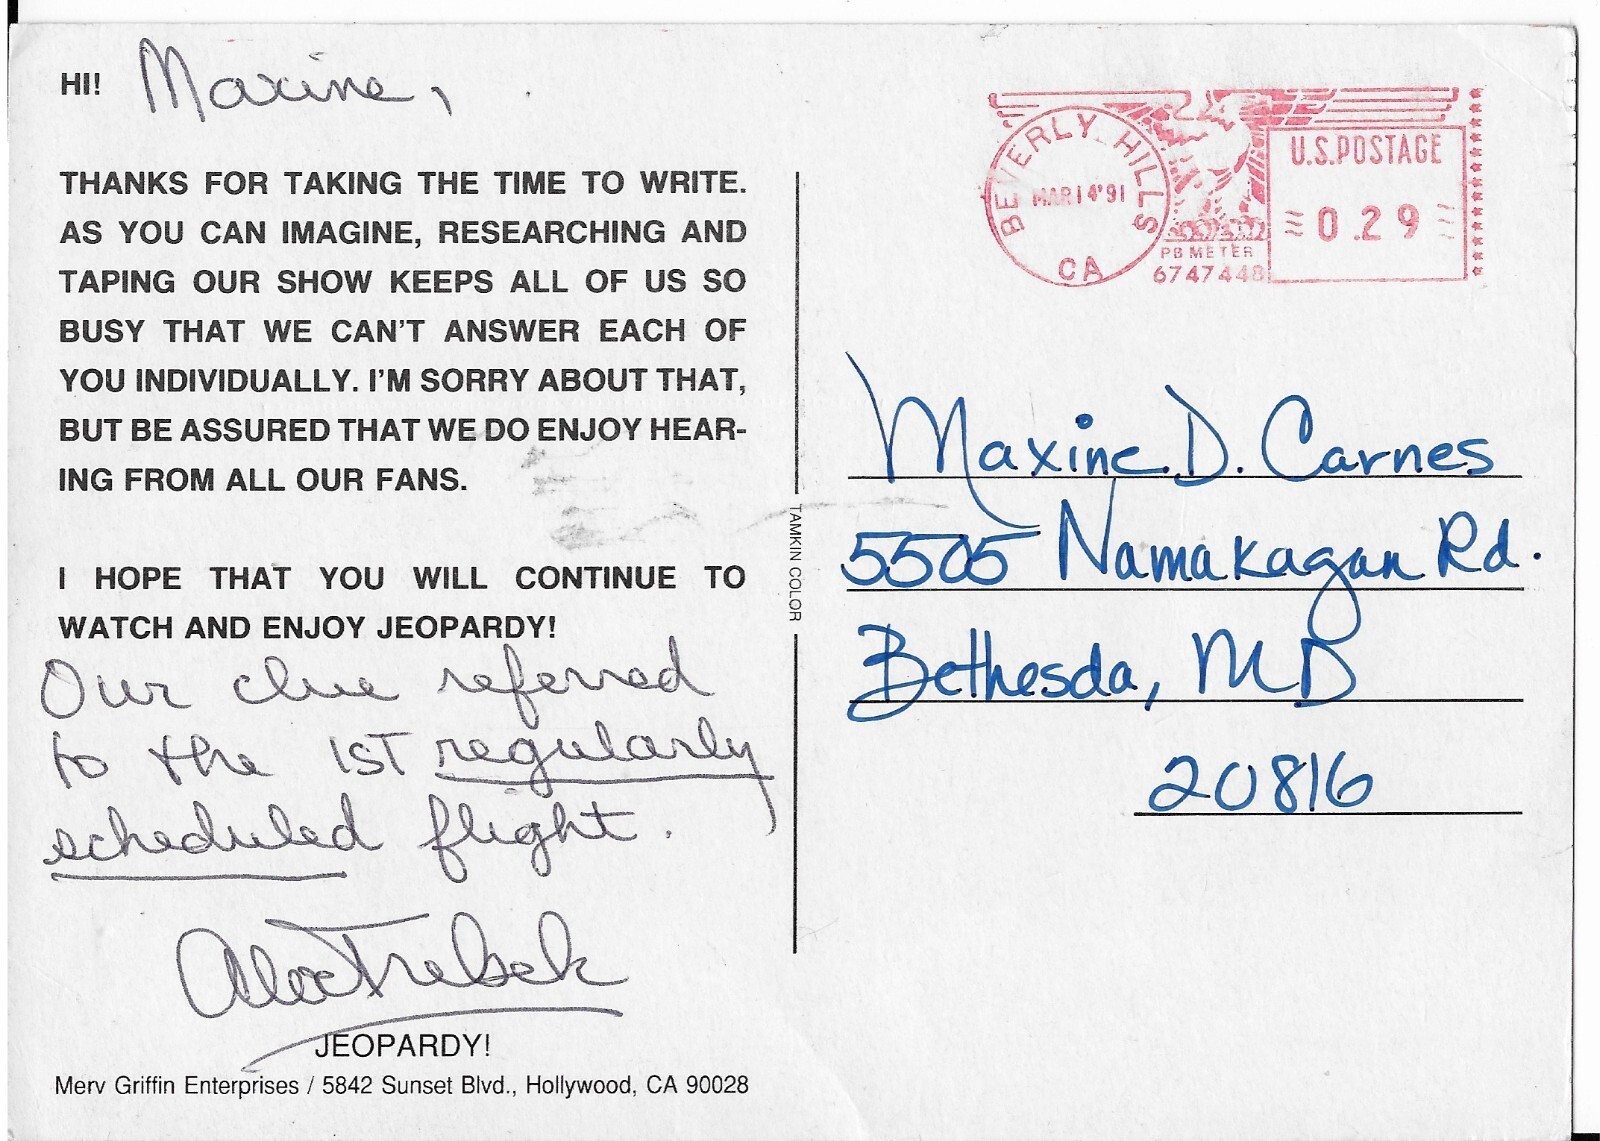 HI! Maxine,
THANKS FOR TAKING THE TIME TO WRITE.
AS YOU CAN IMAGINE, RESEARCHING AND
TAPING OUR SHOW KEEPS ALL OF US SO
BUSY THAT WE CAN'T ANSWER EACH OF
YOU INDIVIDUALLY. I'M SORRY ABOUT THAT,
BUT BE ASSURED THAT WE DO ENJOY HEAR-
ING FROM ALL OUR FANS.
I HOPE THAT YOU WILL CONTINUE TO
WATCH AND ENJOY JEOPARDY!
Our clue referred
to the 1ST regularly
scheduled flight.
Alex Trebek
JEOPARDY!
Merv Griffin Enterprises / 5842 Sunset Blvd., Hollywood, CA 90028
TAMKIN COLOR
BEVERLY HILLS
MAR 14 '91
CA
PB METER
6747448
U.S. POSTAGE
0.29
Maxine D. Carnes
5505 Namakagan Rd.
Bethesda, MD
20816